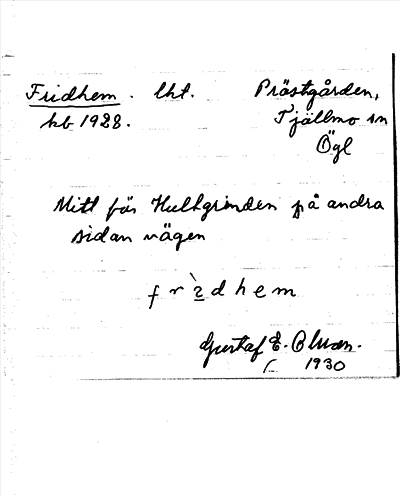 Fridhem. lht. Prästgården,
hb 1928. Tjällmo sn
Ögl
Mitt för Hultgrinden på andra
sidan vägen
dhem
Gustaf E.
1930